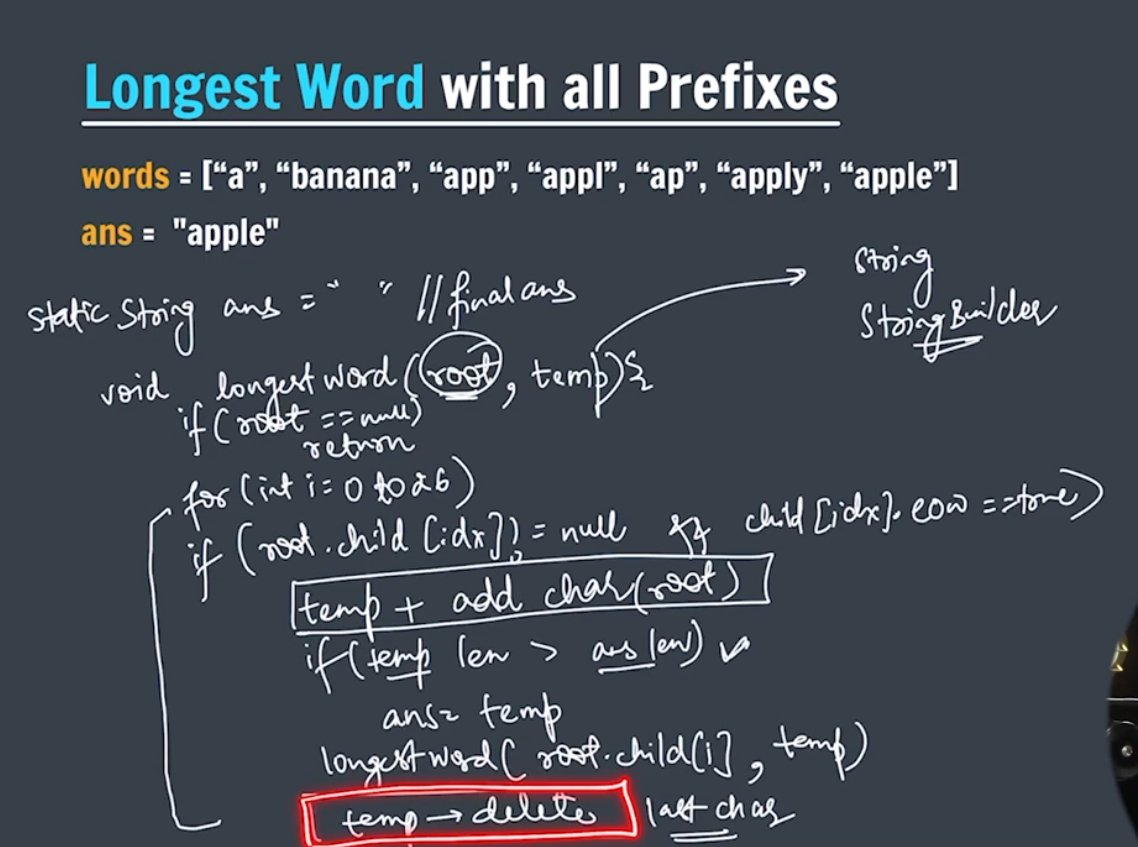 Longest Word with all Prefixes
words = [“a”, “banana”, “app”, “appl”, “ap”, “apply”, “apple”]
ans = "apple"
static String ans = " " // final ans
String
StringBuilder
void longestword(root, temp){
if(root == null)
return
for(int i=0 to 26)
if (root.child[idx]) != null && child[idx].eow == true)
temp + add char(root)
if(temp len > ans len)
ans = temp
longestword(root.child[i], temp)
temp → delete last char